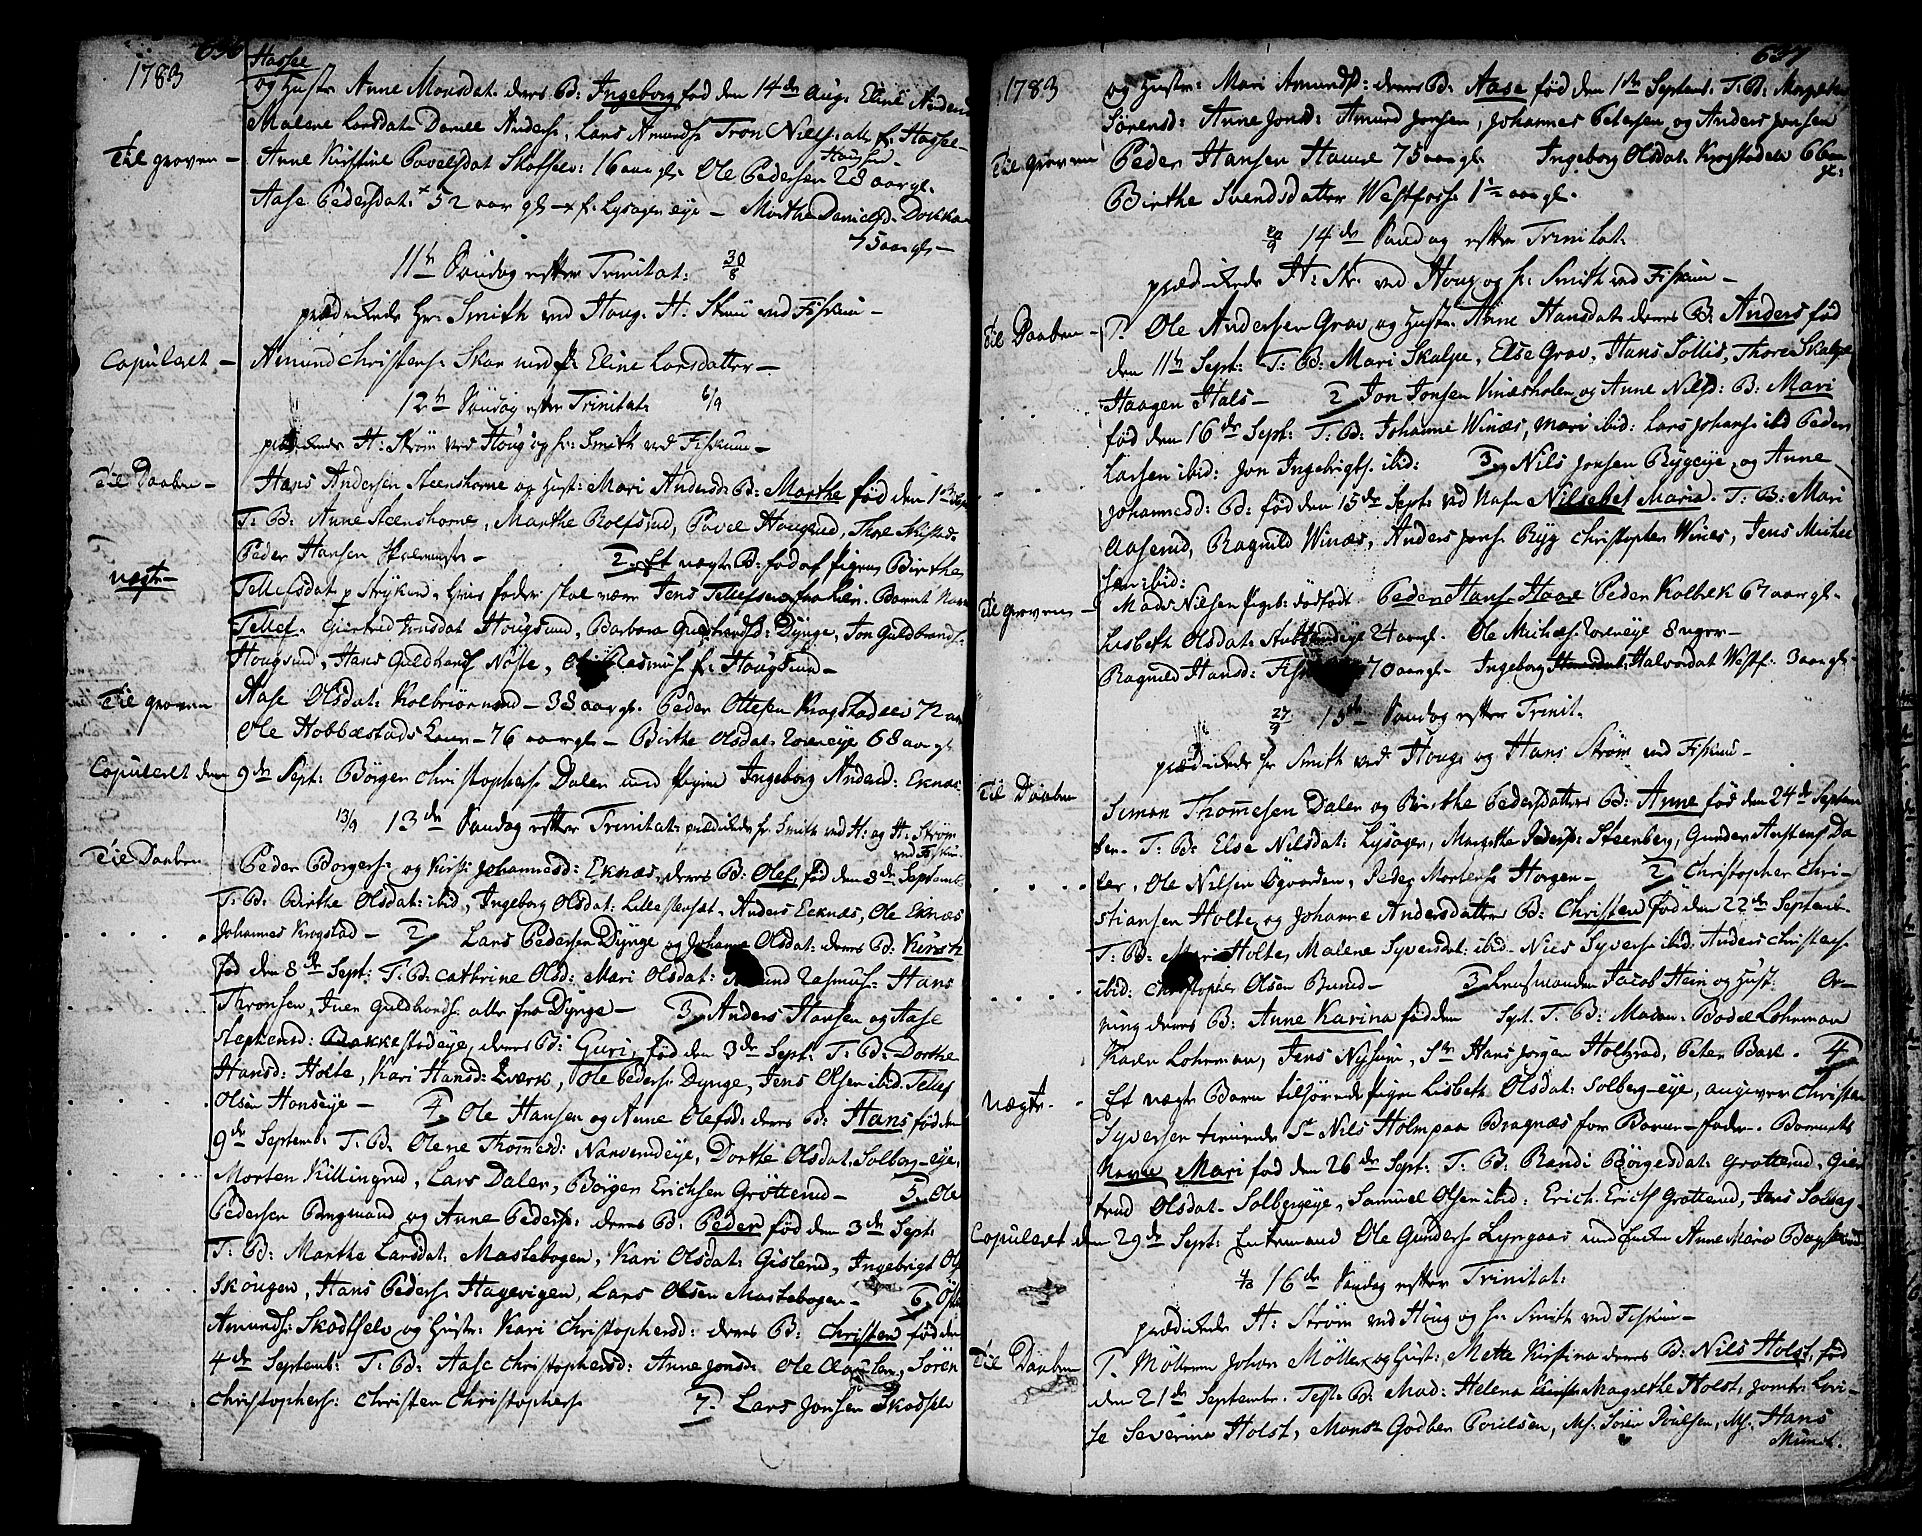 1783
636
Hassel
og Hustr Anne Monsdat: deres B: Ingeborg fød den 14de Aug: Eline Andersd
Malene Larsdat Daniel Anders: Lars Amunds: Tron Nils: alle f: Hassel
Til Graven - Anne Kirstine Povelsdat Skotselv: 16 aar gl: Ole Pedersen Hougsu 28 aar gl.
Aase Pedersdat: + 52 aar gl - + f: Lysager eye - Marthe Danielsd: Dokka
75 aar gl -
11te Søndag efter Trinitat: 30/8
prædikede Hr: Smith ved Houg. H: Strøm ved Fiskum -
Copuleret - Amund Christens: Skar med P: Eline Larsdatter -
12te Søndag efter Trinitat: 6/9
prædikede H: Strøm ved Houg og hr: Smith ved Fiskum -
Til Daaben - Hans Andersen Steenshorne og Hust: Mari Andersd: B: Marthe fød den 1
T: B: Anne Steenshorne, Marthe Rolfsrud, Povel Hougsrud, Thore
Peder Hansen
Uægte - 2, Et uægte B: fød af Pigen Birthe
Tellefsdat p Stryken, hvis fader skal være Jens Tellefsen fra Lier. Barnet Navn
Tellef. Giertrud Jonsdat Hougsund, Barbara Guldbrandsd: Dynge, Jon Guldbrands:
Hougsund, Hans Guldbrands Nøste, Ole Rasmus: f: Hougsund -
Til Graven Aase Olsdat: Kolbriørnsrud - 38 aar gl. Peder Ottesen Krogstadelv 72 aar
Ole Hobbelstads Enke - 76 aar gl - Birthe Olsdat: eye 68 aar gl
Copuleret den 9de Sept: Børger Christophers: Daler med Pigen Ingeborg Andersd: Eknæs
13/9 13de Søndag efter Trinitat: prædikede hr Smith ved H: og H: Strøm
ved Fiskum
Til Daaben Peder Borgers: og Kirst: Johannesd: Eknæs, deres B: Olef, fød den 8de Septemb:
T: B: Birthe Olsdat: ibid, Ingeborg Olsdat: Anders Eeknæs, Ole Eknæs
Johannes Krogstad - 2, Lars Pedersen Dynge og Johanne Olsdat: deres B: Kirsti
fød den 8de Sept: T: B: Cathrine Olsd: Mari Olsdat: Rasmus: Hans
Thronsen, Iver Guldbrands: alle fra Dynge - 3, Anders Hansen og Aase
Stephensd: Bakkestadeye, deres B: Guri, fød den 3de Sept: T: B: Dorthe
Hansd: Holte, Kari Hansd: Qværk, Ole Peders: Dynge, Jens Olsen ibid: Tellef
Olsen Honseye - 4, Ole Hansen og Anne Olefsd: deres B: Hans, fød den
9de Septemb: T: B: Olene Thomesd: Narverudeye, Dorthe Olsdat: Solberg-eye,
Morten Killingrud, Lars Daler, Børger Erichsen Grøtterud - 5, Ole
Pedersen og Anne Peders: deres B: Peder fød den 3de Sept:
T: B: Marthe Larsdat: Mastebogen, Kari Olsdat: Gislerud, Ingebrigt Ols
Skougen, Hans Peders: Hagevigen, Lars Olsen Mastebogen - 6,
Amunds: Skodtselv og Hustr: Kari Christophersd: deres B: Christen fød den
4de Septemb: T: B: Aase Christophersd: Anne Jonsd: Ole Søren
Christophers: Christen Christophers: 7, Lars Jonsen Skodselv
1783
637
og Hustr: Mari Amundsd: deres B: Aase fød den 1te Septemb: T: B: Margrethe
Sørensd: Anne Jonsd: Amund Jonsen, Johannes Petersen og Anders Jonsen
Til Graven Peder Hansen Haave 75 aar gl. Ingeborg Olsdat: Krogstadelv 66 aar
gl:
Birthe Svendsdatter Westfoss: 1½ aar gl.
20/9 14de Søndag efter Trinitat:
prædikede H: Str: ved Houg og hr: Smith ved Fiskum -
Til Daaben - P. Ole Andersen Grav, og Hustr: Anne Hansdat: deres B: Anders fød
den 11te Sept: T: B: Mari Skalpe, Else Grav, Hans Sollid, Thore Skalpe
Haagen Hals - 2, Jon Jonsen Vinæsholen og Anne Nilsd: B: Mari
fød den 16de Sept: T: B: Johanne Winæs, Mari ibid: Lars Johans: ibid Peder
Larsen ibid: Jon Ingebrigts: ibid: 3, Nils Jonsen Rygeye, og Anne
Johannesd: B: fød den 15de Sept: ved Nafn Nilsebet Maria. T: B: Mari
Aaserud, Ragnild Winæs, Anders Jons: Ryg Christopher Winæs, Jens Michel
sen ibid:
Til Graven - Mads Nilsen Pigeb: dødfødt Peder Hans: Haave Peder Kolbek 67 aar gl -
Lisbeth Olsdat: eye 24 aar gl. Ole Michels: eye 8 uger -
Ragnild Hansd: 70 aar gl - Ingeborg Halvordat Westf: 3 aar gl -
27/9 15de Søndag efter Trinit.
prædikede hr Smith ved Houg og Hans Strøm ved Fiskum -
Til Daaben Simon Thomesen Daler og Birthe Pedersdatter B: Anne fød den 24de Septem
ber - T: B: Else Nilsdat: Lysager, Margrethe Pedersd: Steenberg, Gunder Da
ler, Ole Nilsen Øgaarden, Peder Mortens: Horgen - 2, Christopher Chri-
stiansen Holte og Johanne Andersdatter B: Christen fød den 22de Septemb:
T: B: Mari Holte, Malene Syversdat: ibid - Niels Syvers: ibid: Anders Christens:
ibid: Christopher Olsen Bund - 3, Lensmanden Jacob Hein og Hust: Or-
ning deres B: Anne Karina fød den Sept. T: B: Madm: Bodel Lohrman
Karen Lohrman, Jens Nyhuus, Sr Hans Jørgen Holtzrad, Peter Bak. 4,
Uægte. Et uægte Barn tilhørende Pigen Lisbeth Olsdat: Solberg-eye, angiver Christen
Syversen tienende Sr Nils Holm paa Bragnæs for Barne-fader. Barnets
Navn Mari fød den 26de Sept: T: B: Randi Børgersdat: Grøtterud, Gier
trud Olsdat: Solbergeye, Samuel Olsen ibid: Erich Erichs Grøtterud, Jens Solberg
Copuleret den 29de Sept: Enkemand Ole Gunders: Lyngaas med Enken Anne Maria
4/10 16de Søndag efter Trinitat:
prædikede H: Strøm ved Houg og hr: Smith ved Fiskum -
Til Daaben P. Mølleren Johan Møller og Hust: Mette Kirstina deres B: Nils Holst, fød
den 21de Septembr. Test: B: Mad: Helena Magrethe Holst, Jomfr: Lovi-
se Severina Holst, Mons: Godber Poulsen, Ms: Søren Poulsen, Ms: Hans
Munch.